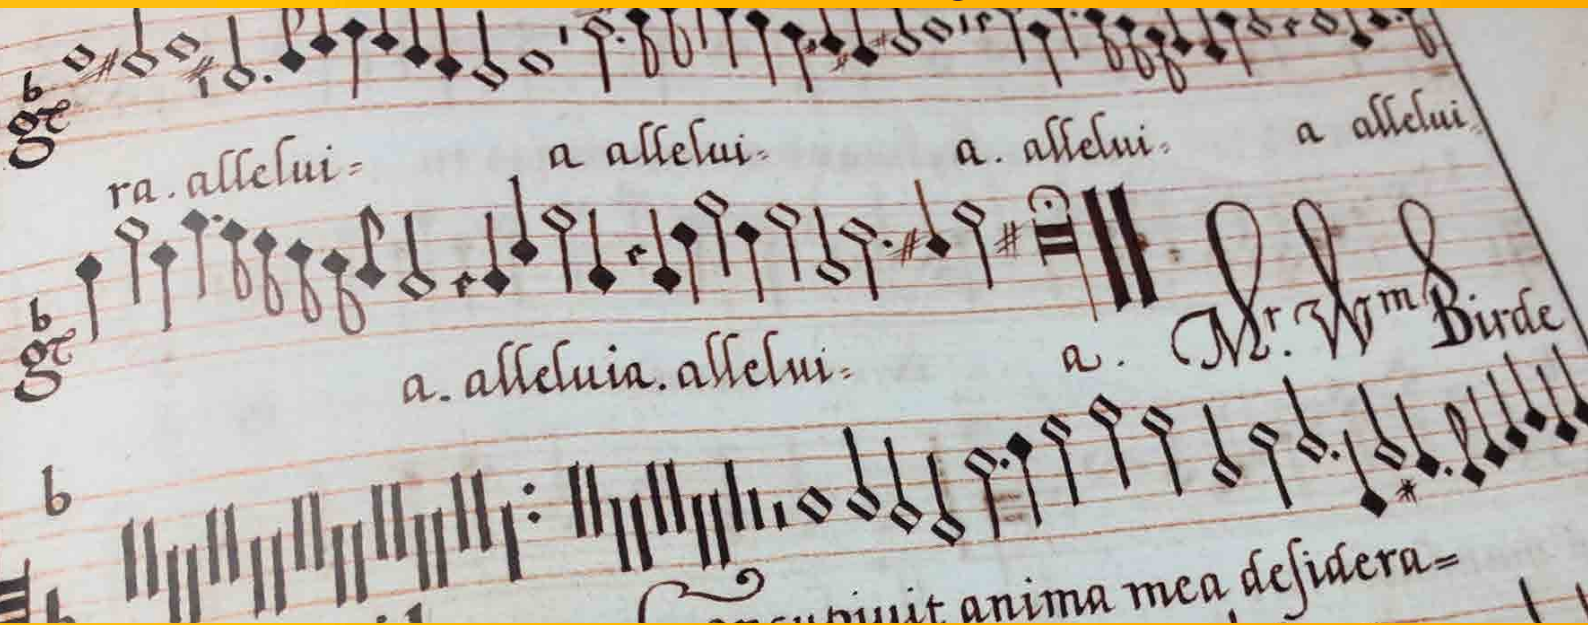 ra. allelui= a allelui= a. allelui= a allelui
a. alleluia. allelui= a. Mr. Wm Birde
Concupiuit anima mea desidera=